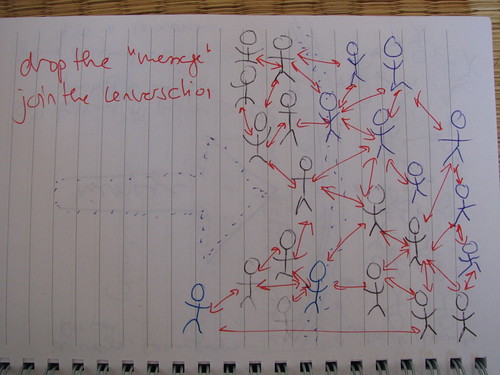 drop the "message"
join the conversation